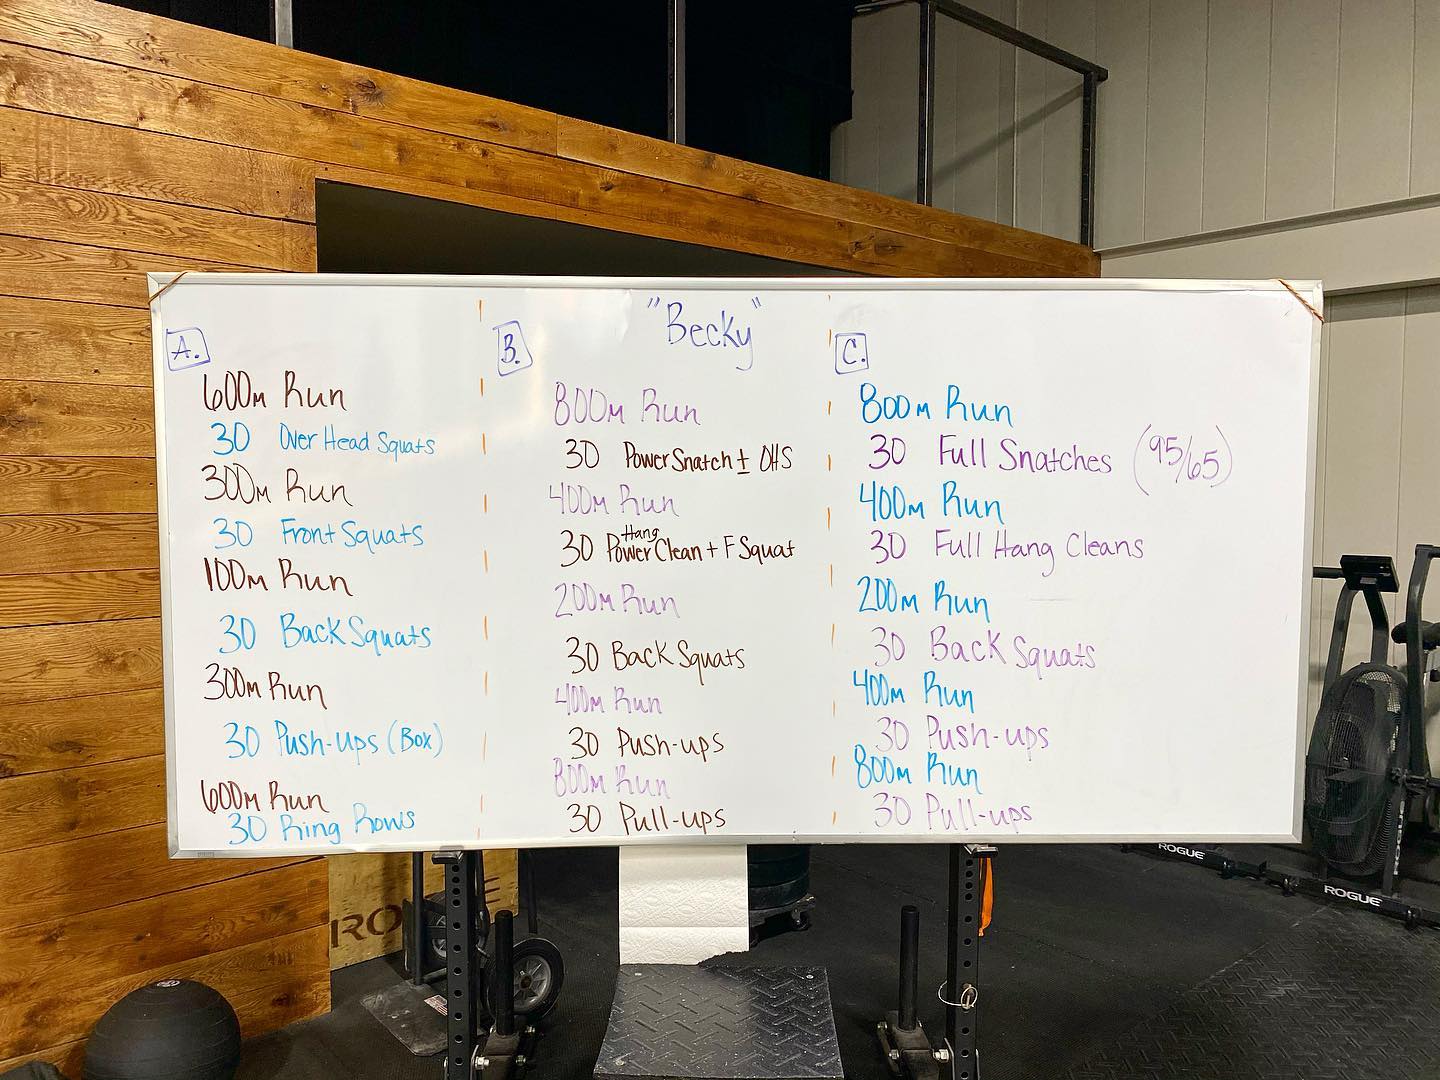 "Becky"
A.
600m Run
30 Over Head Squats
300m Run
30 Front Squats
100m Run
30 Back Squats
300m Run
30 Push-ups (Box)
600m Run
30 Ring Rows
B.
800m Run
30 Power Snatch ± OHS
400m Run
30 Hang Power Clean + F Squat
200m Run
30 Back Squats
400m Run
30 Push-ups
800m Run
30 Pull-ups
C.
800m Run
30 Full Snatches (95/65)
400m Run
30 Full Hang Cleans
200m Run
30 Back Squats
400m Run
30 Push-ups
800m Run
30 Pull-ups
ROGUE
ROGUE